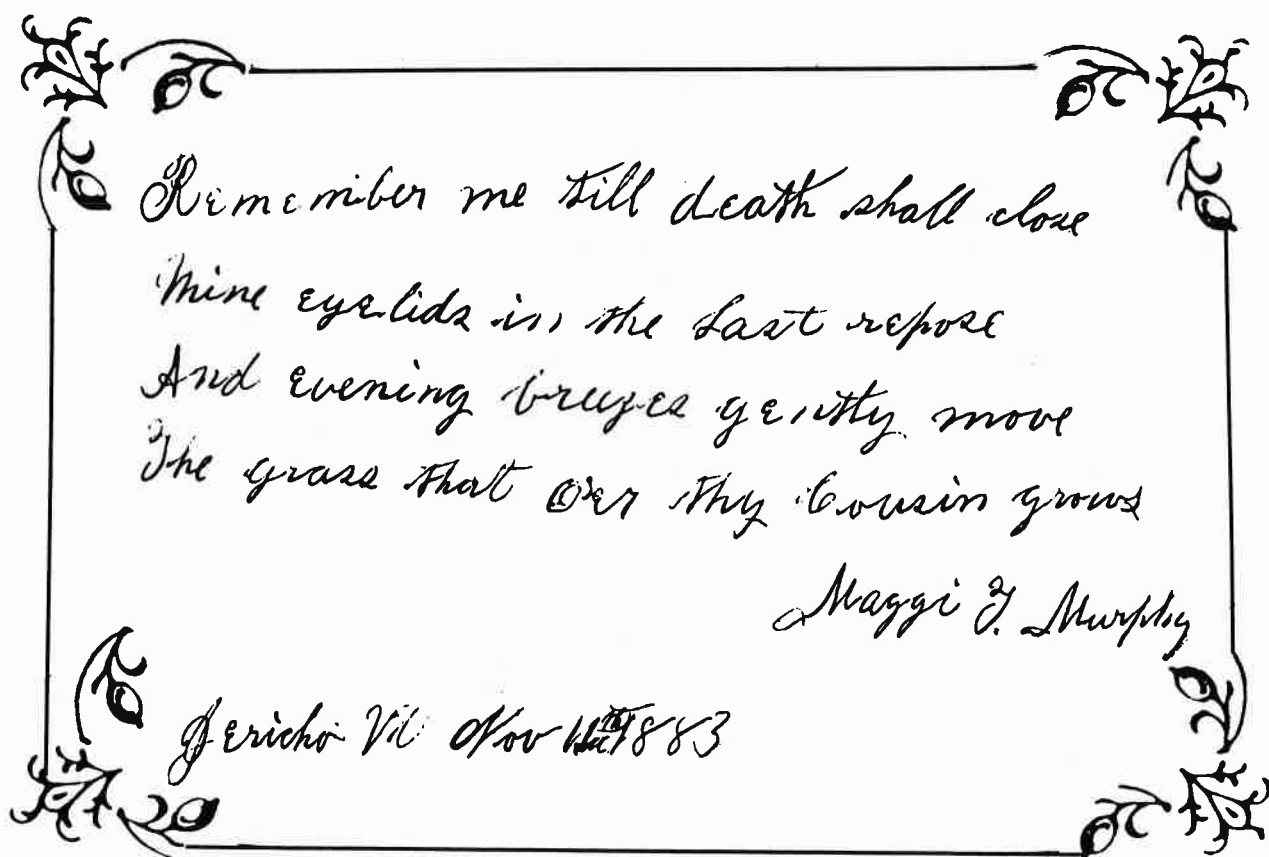 Remember me till death shall close
Mine eyelids in the Last repose
And evening breezes gently move
The grass that O'er thy Cousin grows
Maggi F. Murphy
Jericho Vt Nov 1883